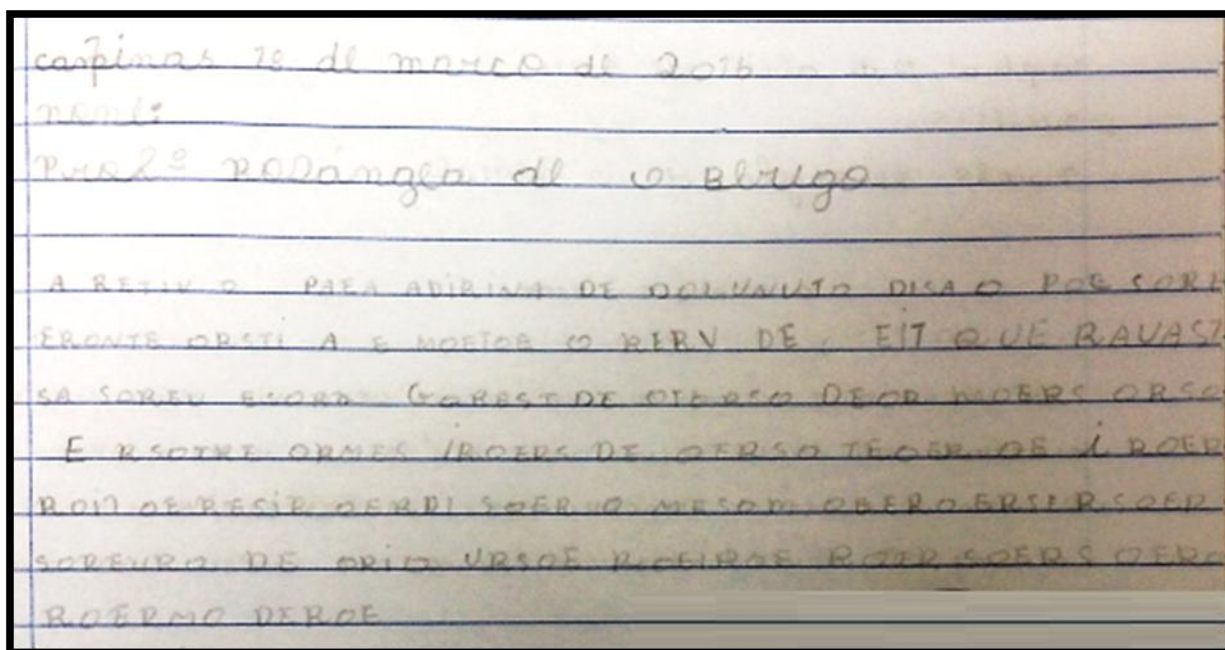 campinas 18 de março de 2016
nome:
Pro2º ROSangela de O Abrigo
A RETIV O PAEA ADIRINA DE DOLUNUTO DISA O POE SORI
ERONTE ORSTI A E MOETOE CO RERV DE EIT QUE RAVAST
SA SOREU ESORD GOREST DE OTEOSO DEOR MOERS ORSO
E RSOTRE ORMES IROERS DE OERSO TEOER OE i ROER
ROIT OE RESIR OERDI SOER O MESOM OBEROERSERSOER
SOREURO DE ORIO URSOE RIOEIROE ROIR SOERS OERO
ROERMO DEROE